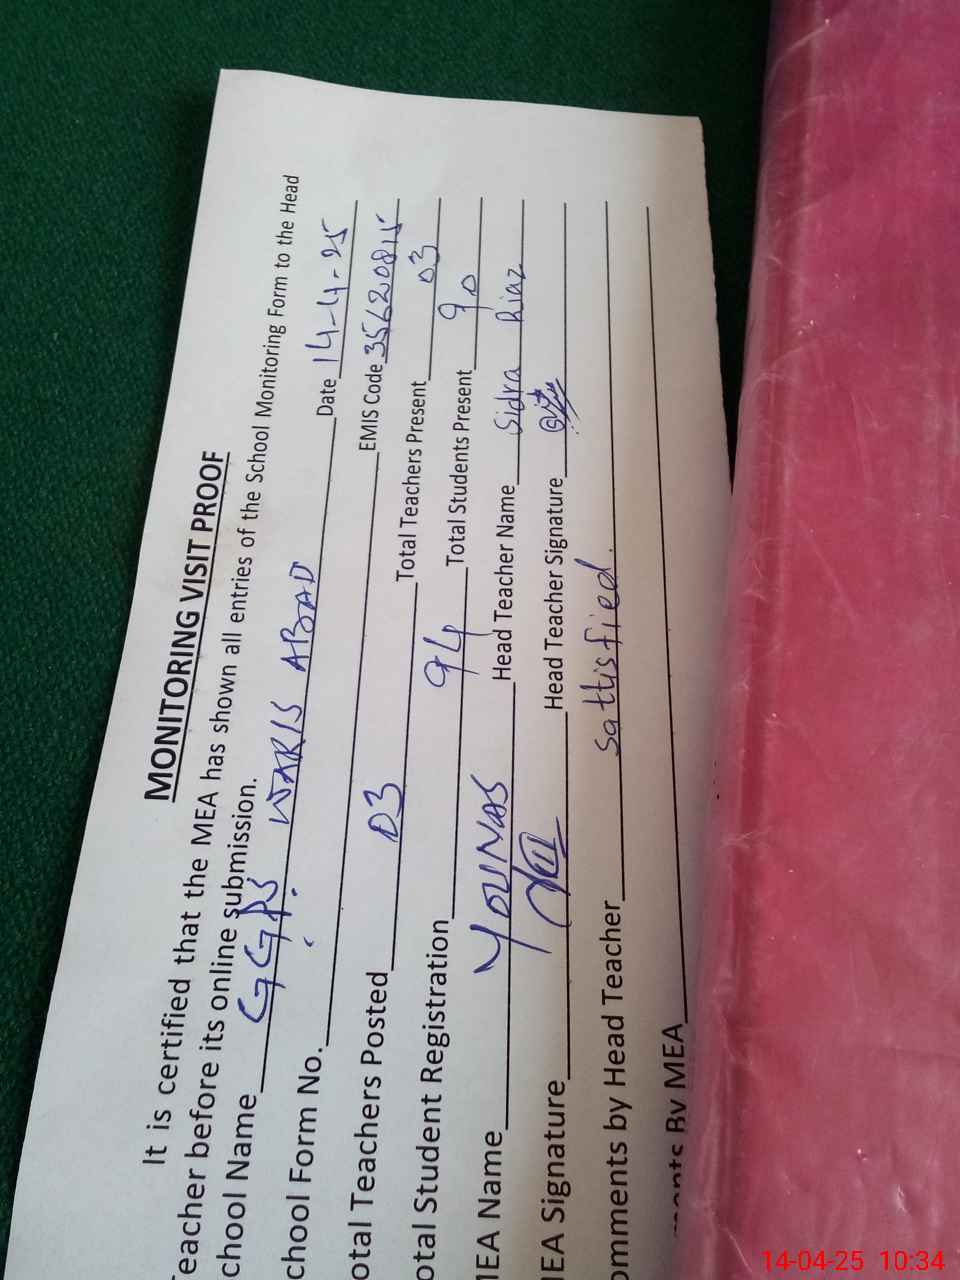 MONITORING VISIT PROOF
It is certified that the MEA has shown all entries of the School Monitoring Form to the Head
Teacher before its online submission.
chool Name GGPS WARIS ABAD Date 14-4-25
chool Form No. EMIS Code 35620815
otal Teachers Posted 03 Total Teachers Present 03
otal Student Registration 94 Total Students Present 90
MEA Name YOUNAS Head Teacher Name Sidra Riaz
MEA Signature Head Teacher Signature
omments by Head Teacher Sattisfied.
ments By MEA
14-04-25 10:34